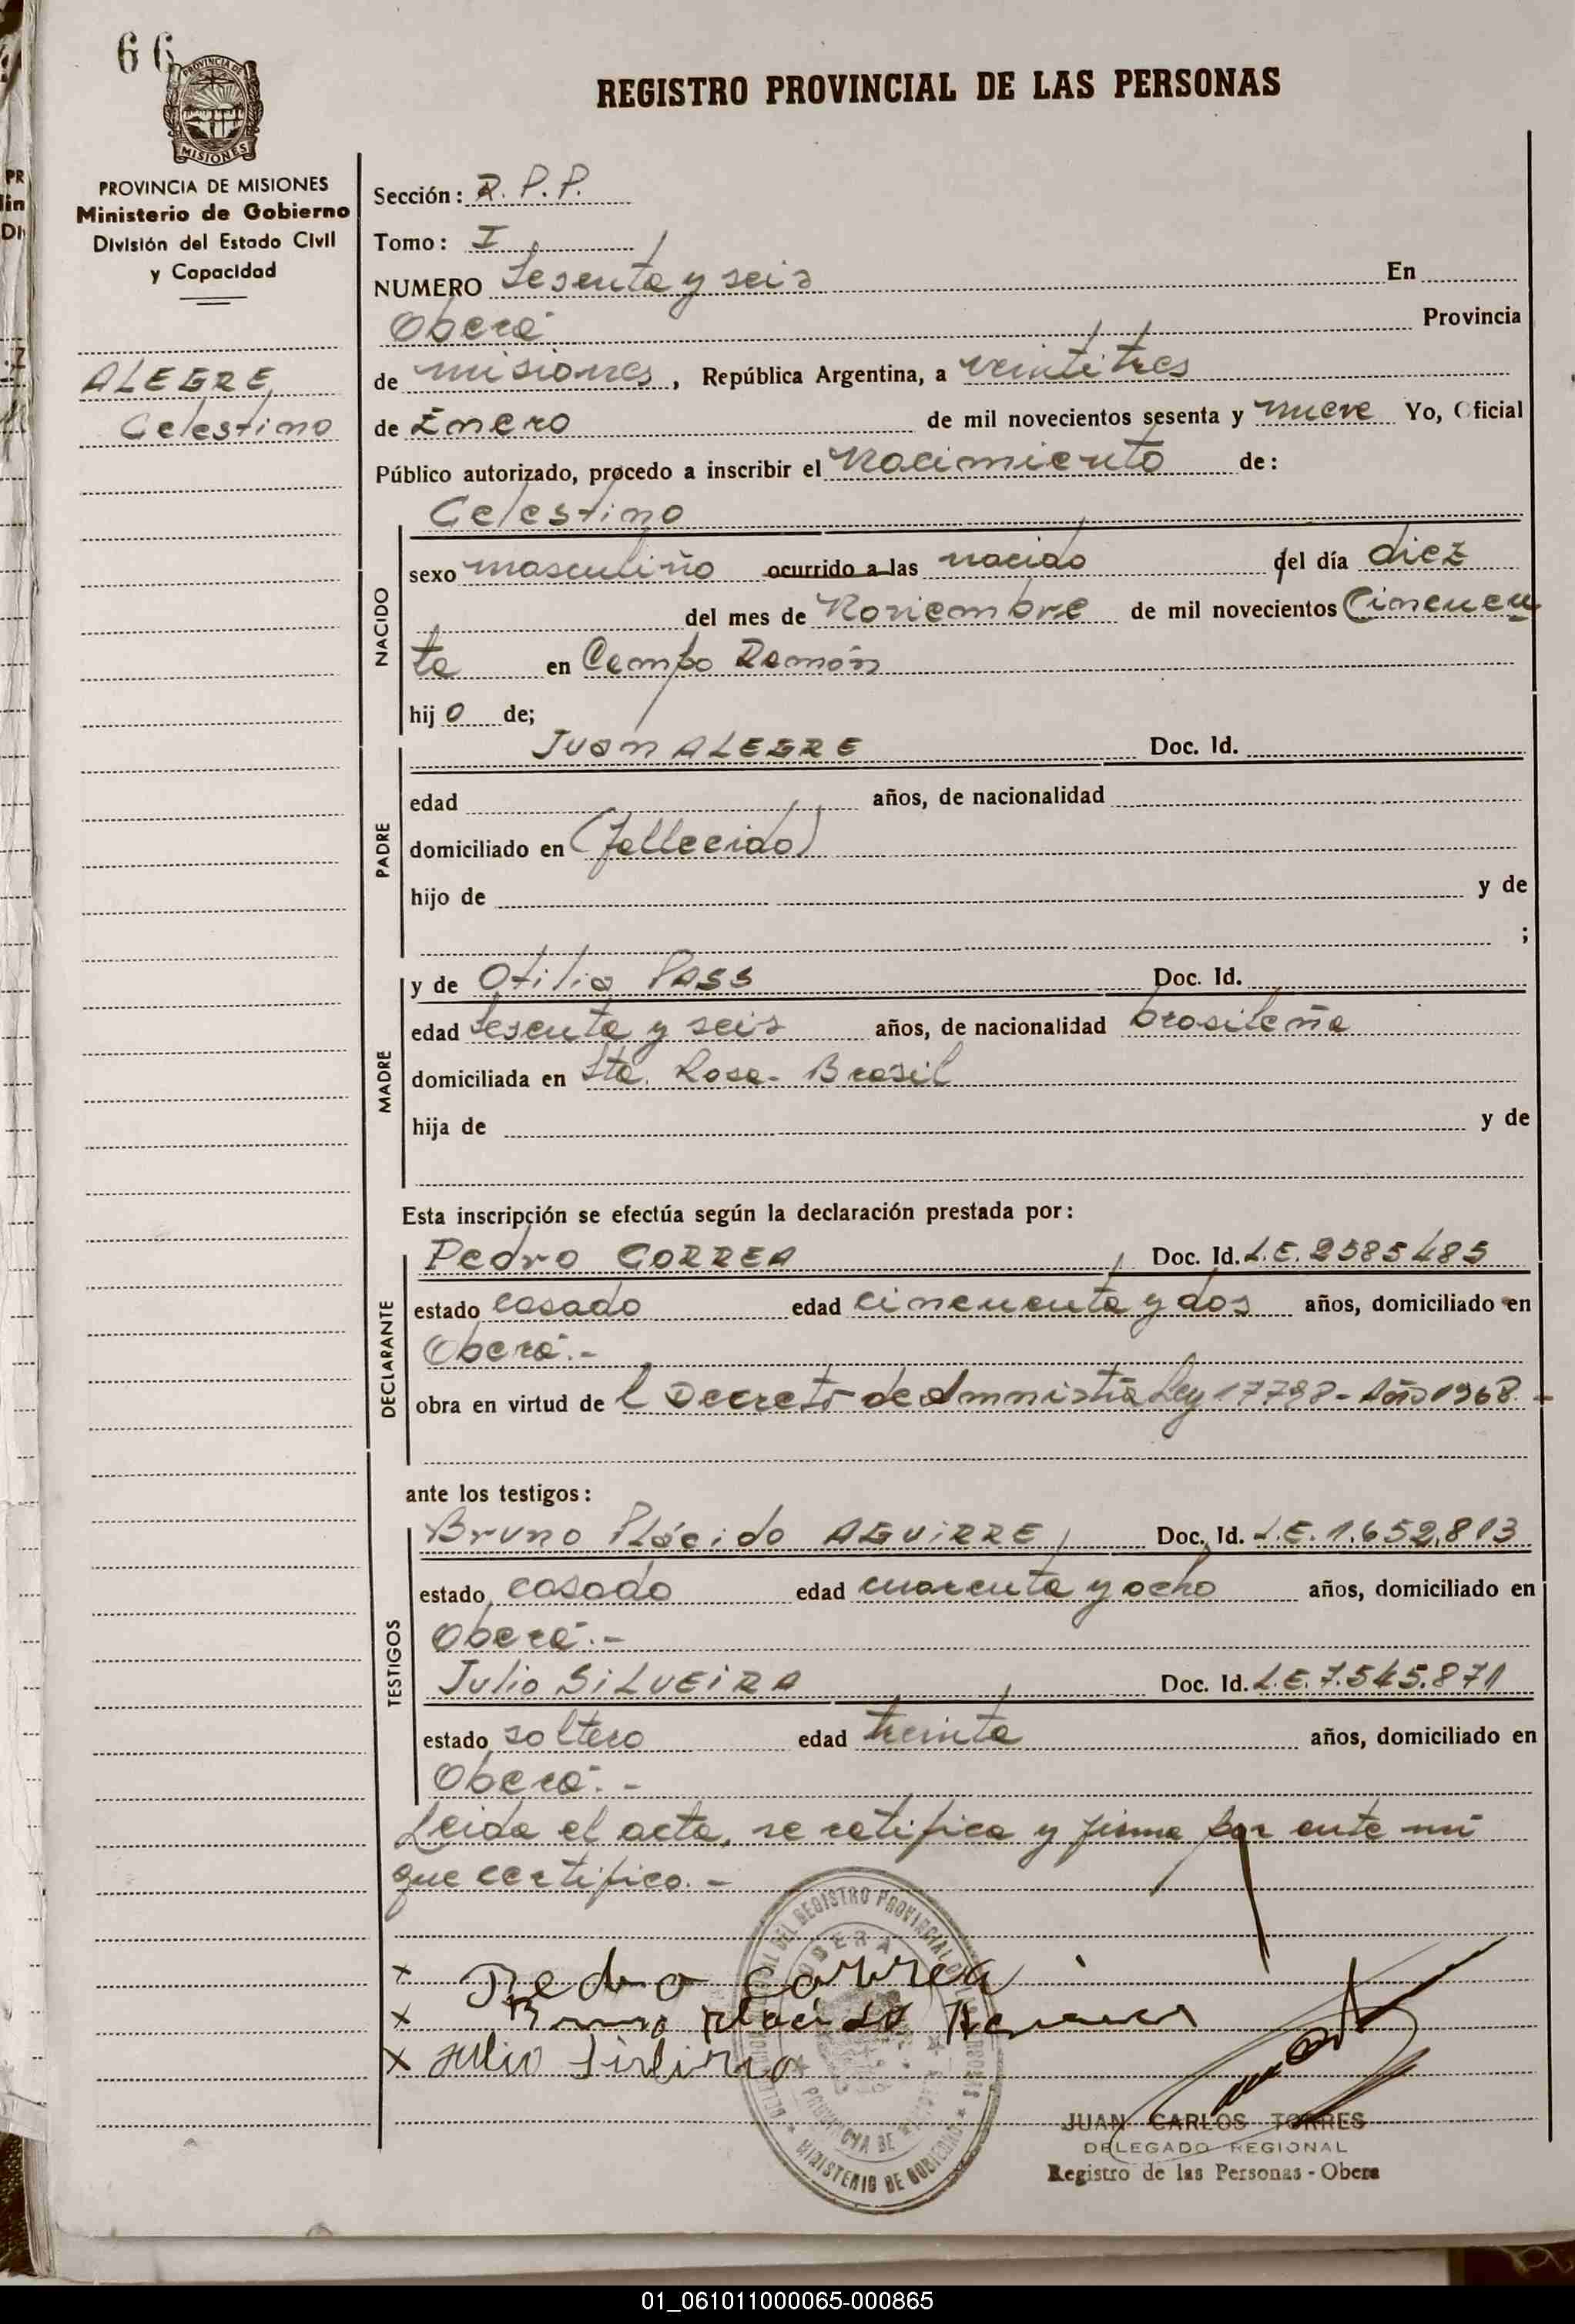 66
REGISTRO PROVINCIAL DE LAS PERSONAS
PROVINCIA DE MISIONES
Ministerio de Gobierno
División del Estado Civil
y Capacidad
ALEGRE,
Celestino
Sección: R. P. P.
Tomo: I
NUMERO Sesenta y seis En
Oberá
Provincia
de misiones, República Argentina, a veintitres
de Enero de mil novecientos sesenta y nueve Yo, Oficial
Público autorizado, procedo a inscribir el Nacimiento de:
Celestino
NACIDO
sexo masculino ocurrido a las nacido del día diez
del mes de Noviembre de mil novecientos Cincuen
ta en Campo Ramón
hijo de;
PADRE
Juan ALEGRE Doc. Id.
edad años, de nacionalidad
domiciliado en (fallecido)
hijo de y de
;
MADRE
y de Otilia PASS Doc. Id.
edad Sesenta y seis años, de nacionalidad brasileña
domiciliada en Sta. Rosa- Brasil
hija de y de
Esta inscripción se efectúa según la declaración prestada por:
DECLARANTE
Pedro CORREA Doc. Id. L.E. 2585485
estado casado edad cincuenta y dos años, domiciliado en
Oberá.-
obra en virtud de l Decreto de Amnistía Ley 17798- Año 1968.-
ante los testigos:
TESTIGOS
Bruno Plácido AGUIRRE Doc. Id. L.E. 1.652.813
estado casado edad cuarenta y ocho años, domiciliado en
Oberá.-
Julio SILVEIRA Doc. Id. L.E. 7.545.871
estado soltero edad treinta años, domiciliado en
Oberá.-
Leida el acta, se ratifica y firma por ante mí
que certifico.-
x Pedro Correa
x Bruno Placido
x Julio
JUAN CARLOS TORRES
DELEGADO REGIONAL
Registro de las Personas - Obera
01_061011000065-000865